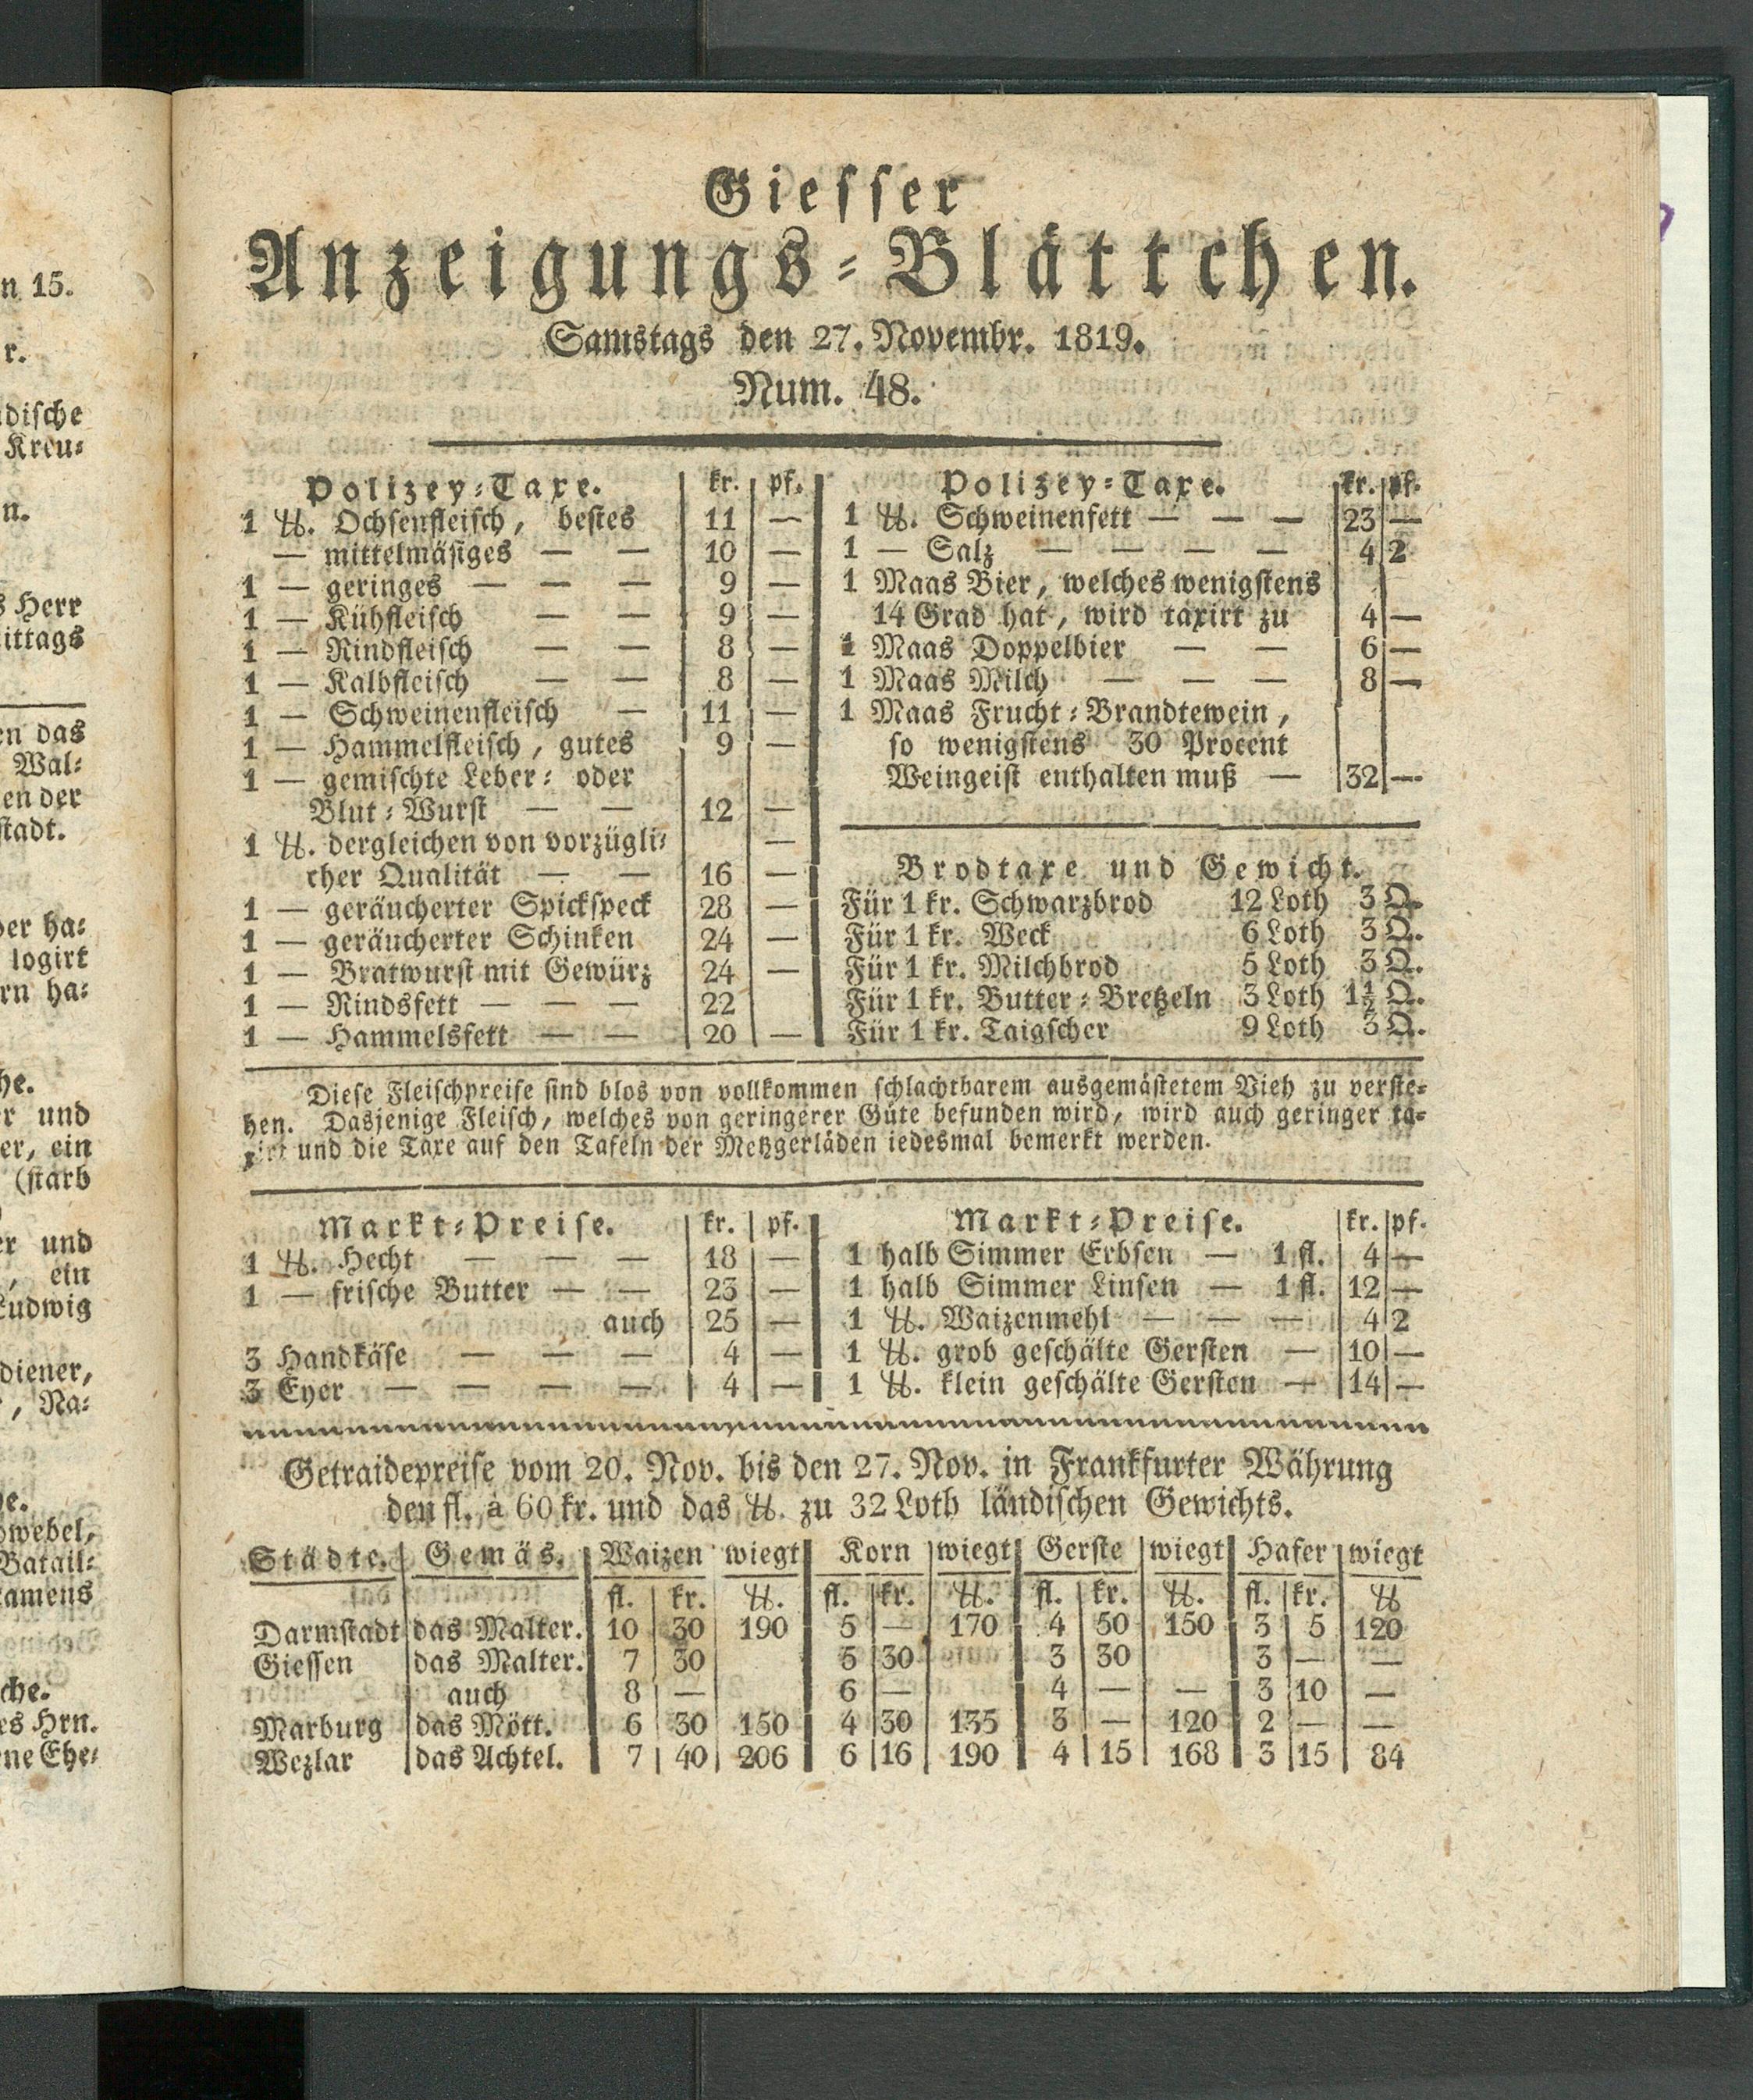 n 15.
r.
dische
Kreu=
n.
s Herr
ittags
en das
Wal=
en der
stadt.
er ha=
logirt
rn ha=
he.
r und
er, ein
(starb
er und
, ein
Ludwig
diener,
, Na=
e.
webel,
Batail=
amens
che.
es Hrn.
ne Ehe=
Giesser
Anzeigungs=Blättchen.
Samstags den 27. Novembr. 1819.
Num. 48.
Polizey=Taxe. kr. pf.
1 ℔. Ochsenfleisch, bestes 11 —
— mittelmäsiges — — 10 —
1 — geringes — — — 9 —
1 — Kühfleisch — — 9 —
1 — Rindfleisch — — 8 —
1 — Kalbfleisch — — 8 —
1 — Schweinenfleisch — 11 —
1 — Hammelfleisch, gutes 9 —
1 — gemischte Leber= oder
Blut=Wurst — — 12 —
1 ℔. dergleichen von vorzügli= —
cher Qualität — — 16 —
1 — geräucherter Spickspeck 28 —
1 — geräucherter Schinken 24 —
1 — Bratwurst mit Gewürz 24 —
1 — Rindsfett — — — 22
1 — Hammelsfett — — 20 —
Polizey=Taxe. kr. pf.
1 ℔. Schweinenfett — — — 23 —
1 — Salz — — — — 4 2
1 Maas Bier, welches wenigstens
14 Grad hat, wird taxirt zu 4 —
1 Maas Doppelbier — — 6 —
1 Maas Milch — — — 8 —
1 Maas Frucht=Brandtewein,
so wenigstens 30 Procent
Weingeist enthalten muß — 32 —
Brodtaxe und Gewicht.
Für 1 kr. Schwarzbrod 12 Loth 3 Q.
Für 1 kr. Weck 6 Loth 3 Q.
Für 1 kr. Milchbrod 5 Loth 3 Q.
Für 1 kr. Butter=Bretzeln 3 Loth 1½ Q.
Für 1 kr. Taigscher 9 Loth 3 Q.
Diese Fleischpreise sind blos von vollkommen schlachtbarem ausgemästetem Vieh zu verste=
hen. Dasjenige Fleisch, welches von geringerer Güte befunden wird, wird auch geringer ta=
xirt und die Taxe auf den Tafeln der Metzgerläden iedesmal bemerkt werden.
Markt=Preise. kr. pf.
1 ℔. Hecht — — — 18 —
1 — frische Butter — — 23 —
auch 25 —
3 Handkäse — — — 4 —
3 Eyer — — — — 4 —
Markt=Preise. kr. pf.
1 halb Simmer Erbsen — 1 fl. 4 —
1 halb Simmer Linsen — 1 fl. 12 —
1 ℔. Waizenmehl — — — 4 2
1 ℔. grob geschälte Gersten — 10 —
1 ℔. klein geschälte Gersten — 14 —
Getraidepreise vom 20. Nov. bis den 27. Nov. in Frankfurter Währung
den fl. à 60 kr. und das ℔. zu 32 Loth ländischen Gewichts.
Städte. Gemäs. Waizen wiegt Korn wiegt Gerste wiegt Hafer wiegt
fl. kr. ℔. fl. kr. ℔. fl. kr. ℔. fl. kr. ℔
Darmstadt das Malter. 10 30 190 5 — 170 4 50 150 3 5 120
Giessen das Malter. 7 30 5 30 3 30 3 — —
auch 8 — 6 — 4 — — 3 10 —
Marburg das Mött. 6 30 150 4 30 135 3 — 120 2 — —
Wezlar das Achtel. 7 40 206 6 16 190 4 15 168 3 15 84